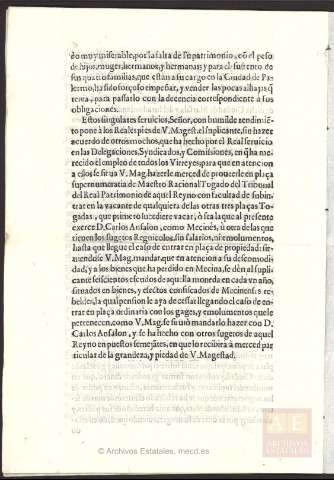 do muy miserable, por la falta de su patrimonio, cõ el peso
de hijos, muger, hermanos, y hermanas; y para el sustento de
sus quatro familias, que estan a su cargo en la Ciudad de Pa-
lermo, ha sido forçoso empeñar, y vender las pocas alhajas q̃
tenia, para passarlo con la decencia correspondiente a sus
obligaciones.
Estos singulares seruicios, Señor, con humilde rendimiẽ-
to pone à los Reales pies de V. Magest. el suplicante, sin hazer
acuerdo de otros mochos, que ha hecho por el Real seruicio
en las Delegaciones, Syndicados, y Comisiones, en q̃ ha me-
recido el empleo de todos los Virreyes para que en atencion
a ellos se sirua V. Mag. hazerle merced de proueerle en plaça
supernumeraria de Maestro Racional Togado del Tribunal
del Real Patrimonio de aquel Reyno con facultad de subin-
trar en la vacante de qualquiera de las otras tres plaças To-
gadas, que primero sucediere vacar, ò sea la que al presente
exerce D. Carlos Ansalon, como Mecinès, ù otra de las que
tienen los sugetos Regnicolos, sin salarios, ni emolumentos,
hasta que llegue el caso de entrar en plaça de propiedad; sir-
uiendose V. Mag. mandar que en atencion a su descomodi-
dad, y a los bienes que ha perdido en Mecina, se dèn al supli-
cante seiscientos escudos de aquella moneda en cada vn año,
situados en bienes, y efectos confiscados de Mecineses re-
beldes, la qual pension le aya de cessar llegando el caso de en-
trar en plaça ordinaria con los gages, y emolumentos que le
pertenecen, como V. Mag. se siruiò mandarlo hazer con D.
Carlos Ansalon, y se ha hecho con otros sugetos de aquel
Reyno en puestos semejantes, en que lo recibirà à merced par-
ticular de la grandeza, y piedad de V. Magestad.
© Archivos Estatales, mecd.es
AE
ARCHIVOS
ESTATALES